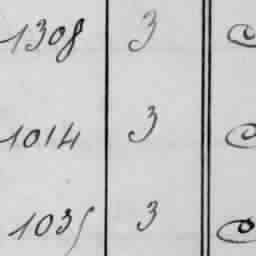 1308 3
1014 3
1035 3